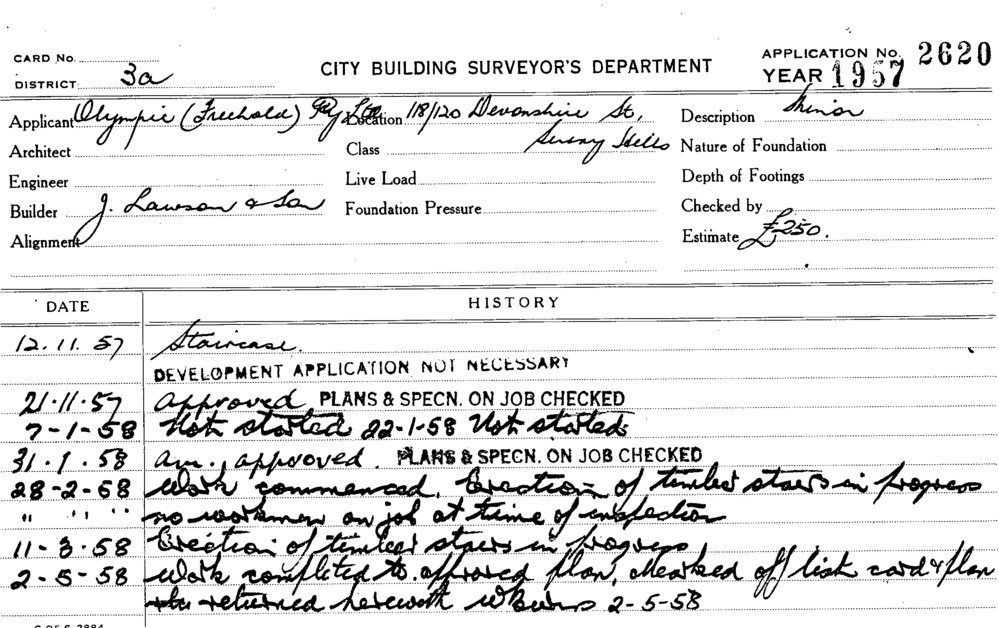 CARD No.
DISTRICT 3a
CITY BUILDING SURVEYOR'S DEPARTMENT
APPLICATION No. 2620
YEAR 1957
Applicant Olympic (Freehold) Pty Ltd Location 118/120 Devonshire St, Description Minor
Architect Class Surry Hills Nature of Foundation
Engineer Live Load Depth of Footings
Builder J. Lawson & Son Foundation Pressure Checked by
Alignment Estimate £250.
DATE HISTORY
12.11.57 Staircase.
DEVELOPMENT APPLICATION NOT NECESSARY
21.11.57 approved PLANS & SPECN. ON JOB CHECKED
7-1-58 Not started 22-1-58 Not started
31.1.58 am. approved. PLANS & SPECN. ON JOB CHECKED
28-2-58 Work commenced. Erection of timber stairs in progress
" " " no workmen on job at time of inspection
11-3-58 Erection of timber stairs in progress
2-5-58 Work completed to approved plan, Marked off list card & plan
returned herewith 2-5-58